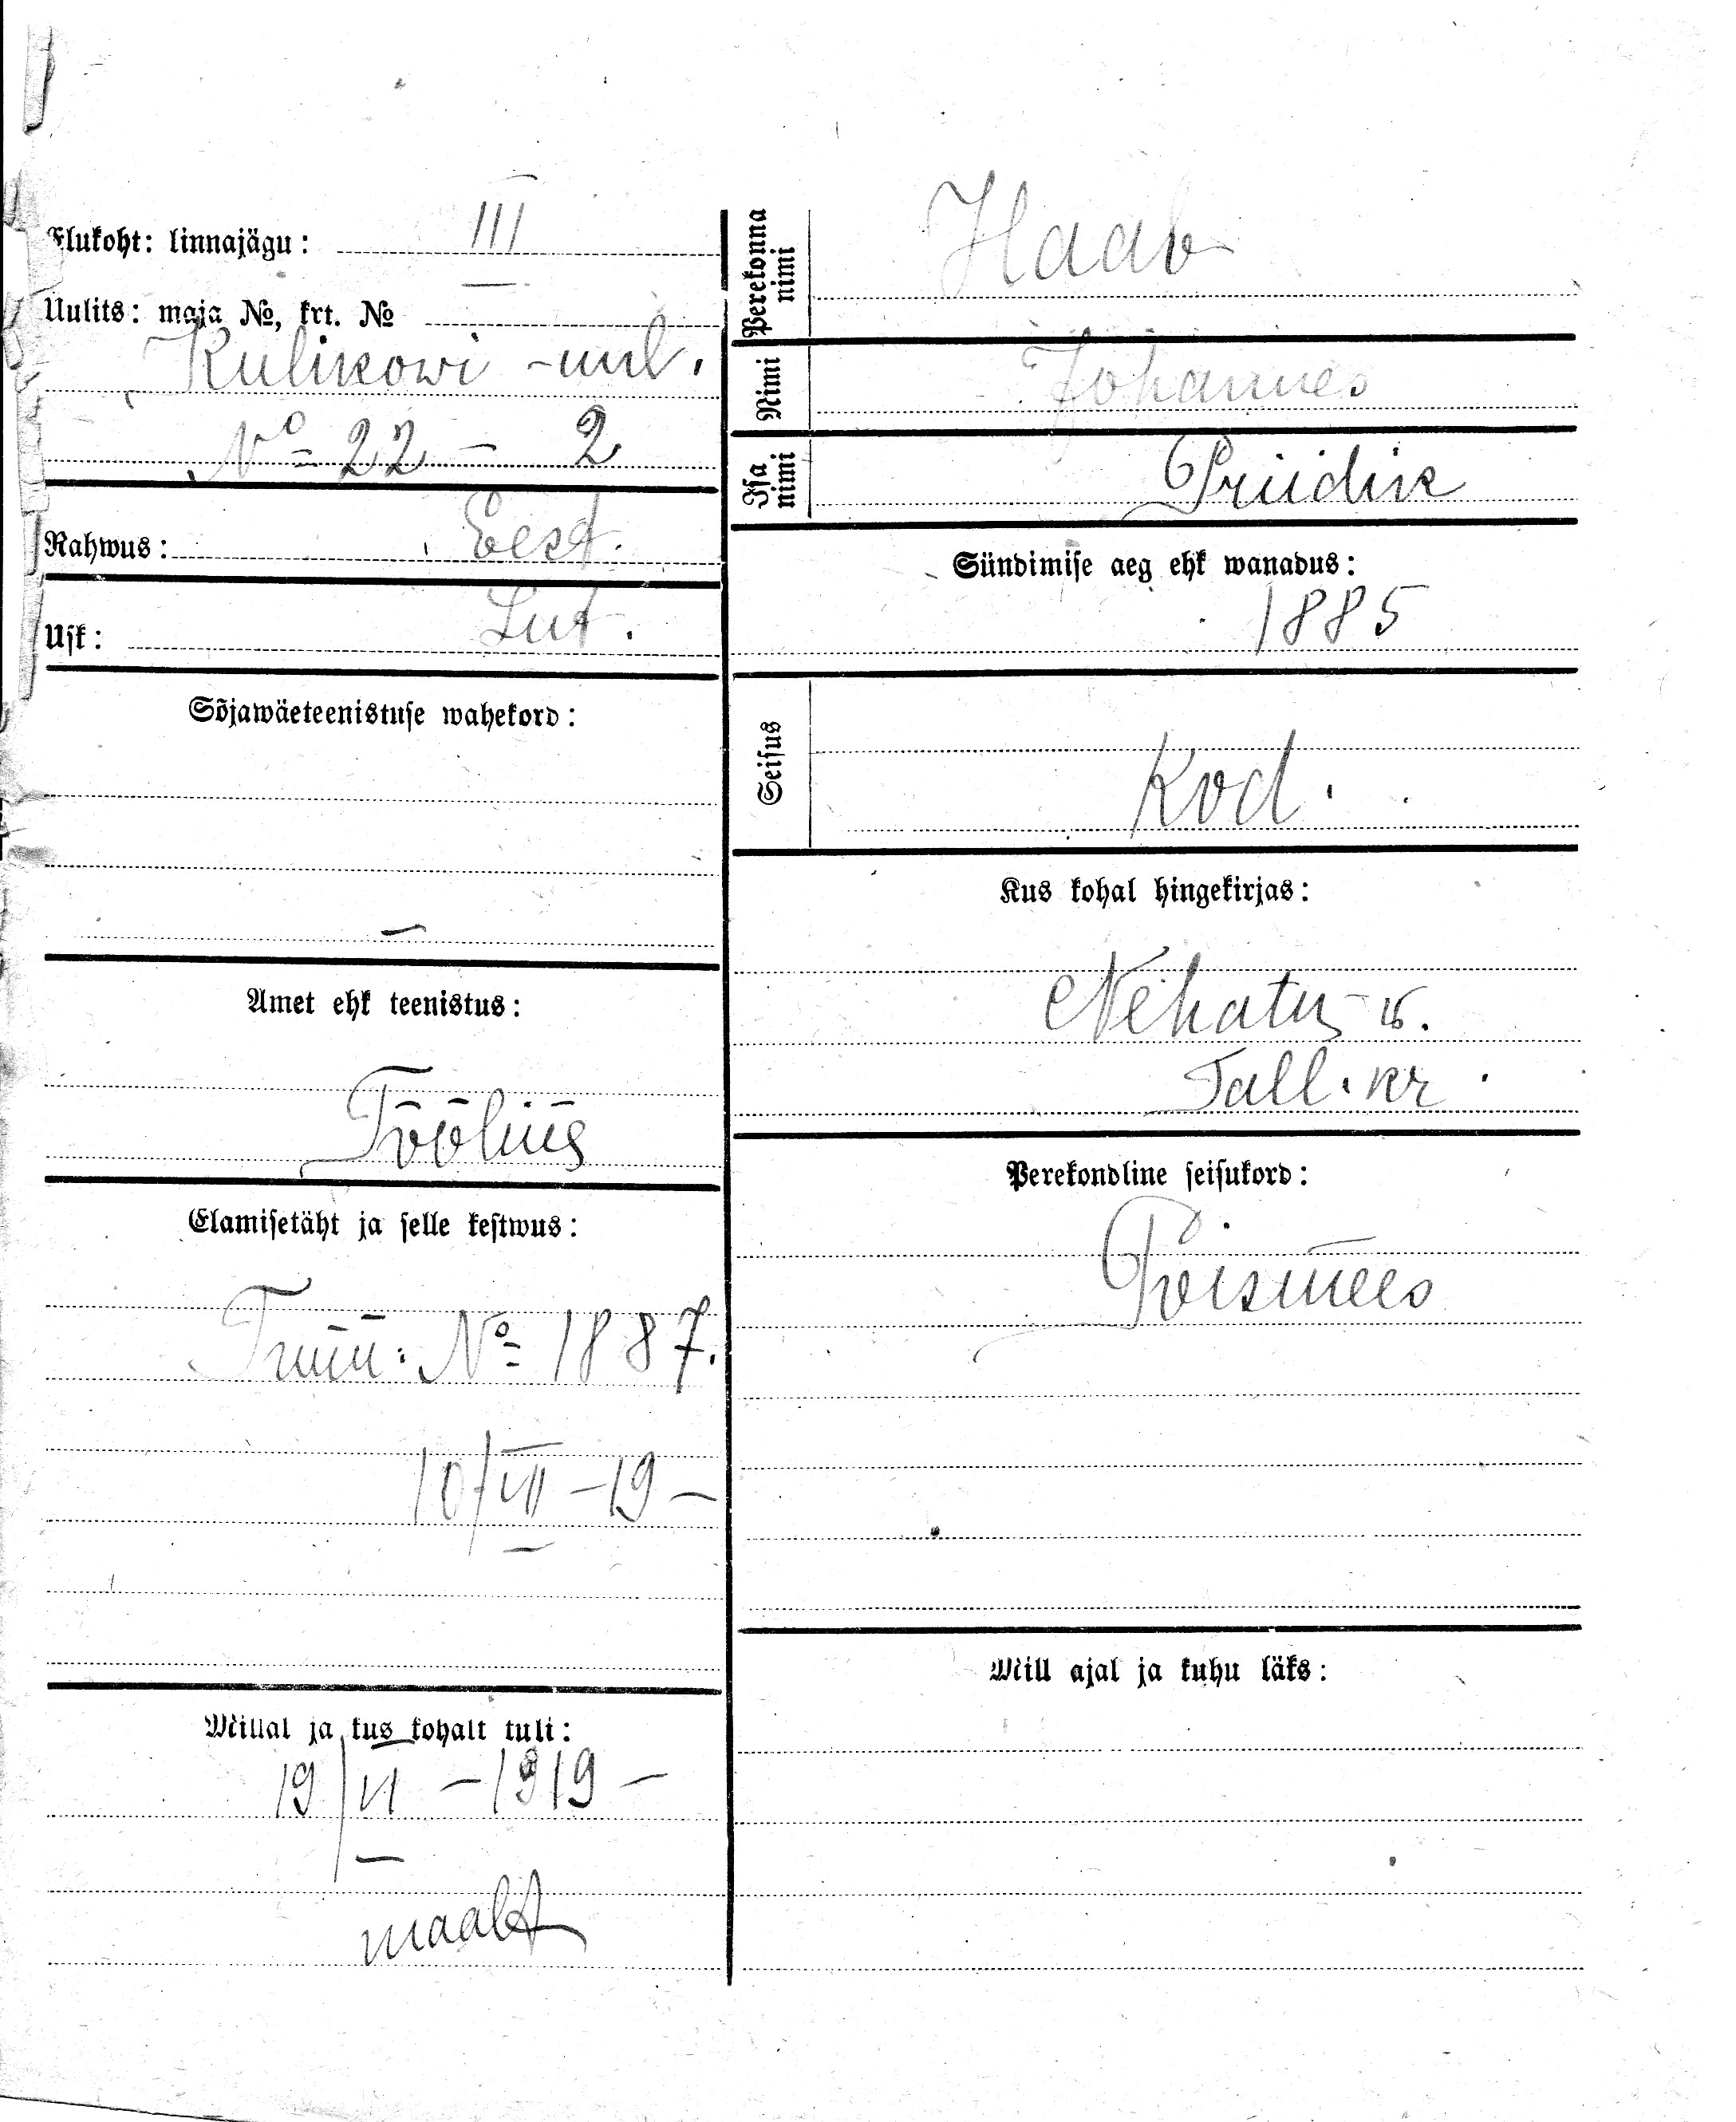 Elukoht: linnajägu: III
Uulits: maja №, krt. №
Kulikowi - uul.
№ 22 - 2
Rahwus: Eest.
Usk: Lut.
Sõjawäeteenistuse wahekord:
—
Amet ehk teenistus:
Tööliis
Elamisetäht ja selle kestwus:
№ 1887.
10/VII - 19 -
Millal ja kus kohalt tuli:
19/VI - 1919 -
maalt
Perekonna nimi
Haab
Nimi
Johannes
Isa nimi
Priidik
Sündimise aeg ehk wanadus:
1885
Seisus
Kod.
Kus kohal hingekirjas:
Nehatu w.
Tall. kr.
Perekondline seisukord:
Poismees
Mill ajal ja kuhu läks: